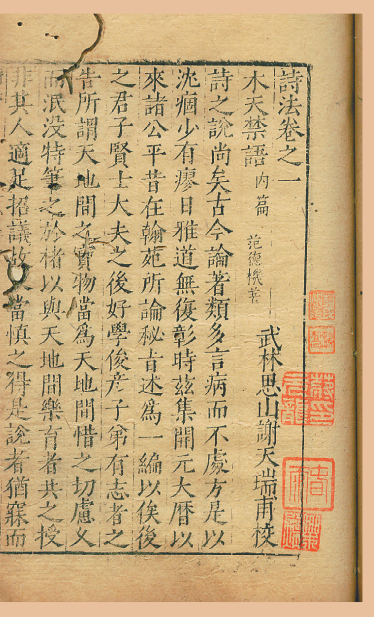 詩法卷之一
武林思山謝天瑞甫校
木天禁語 內篇 范德機著
詩之說尚矣古今論著類多言病而不處方是以
沈痼少有瘳日雅道無復彰時茲集開元大曆以
來諸公平昔在翰苑所論秘旨述為一編以俟後
之君子賢士大夫之後好學俊彥子弟有志者之
告所謂天地間之寶物當為天地間惜之切慮又
而泯没特筆之於楮以與天地間樂育者共之授
非其人適足招議故又當慎之得是說者猶寐而